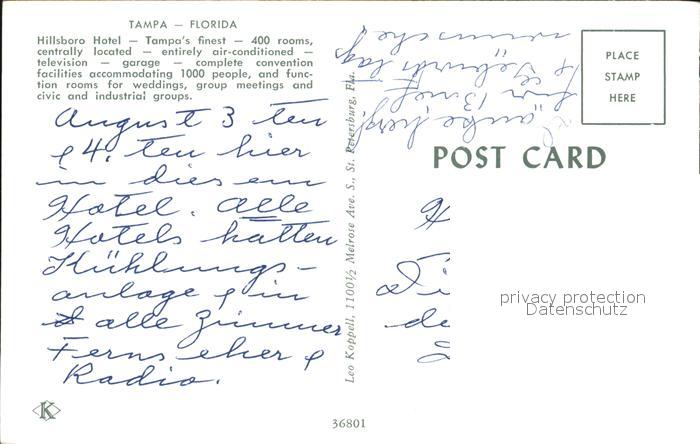 TAMPA — FLORIDA
Hillsboro Hotel — Tampa's finest — 400 rooms,
centrally located — entirely air-conditioned —
television — garage — complete convention
facilities accommodating 1000 people, and func-
tion rooms for weddings, group meetings and
civic and industrial groups.
August 3 ten
& 4. ten hier
in diesem
Hotel. Alle
Hotels hatten
Kühlungs-
anlage & in
alle Zimmer
Fernseher &
Radio.
K
Leo Koppell, 1100½ Melrose Ave. S., St. Petersburg, Fla.
36801
Danke herzl.
für Brief
& Geburtstags
wünsche!
PLACE
STAMP
HERE
POST CARD
H
Di
de
privacy protection
Datenschutz